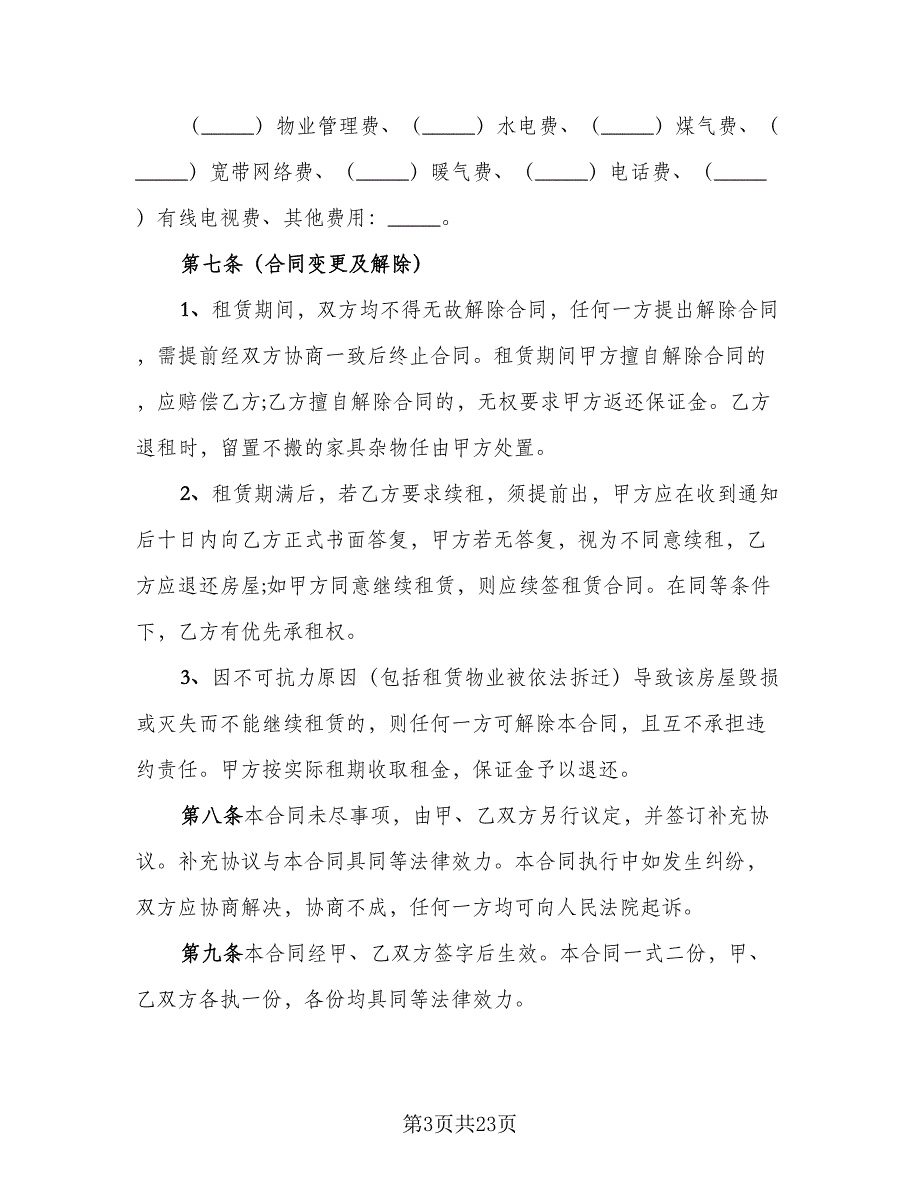 （_____）物业管理费、（_____）水电费、（_____）煤气费、（
_____）宽带网络费、（_____）暖气费、（_____）电话费、（_____
）有线电视费、其他费用：_____。
第七条（合同变更及解除）
1、租赁期间，双方均不得无故解除合同，任何一方提出解除合同
，需提前经双方协商一致后终止合同。租赁期间甲方擅自解除合同的
，应赔偿乙方;乙方擅自解除合同的，无权要求甲方返还保证金。乙方
退租时，留置不搬的家具杂物任由甲方处置。
2、租赁期满后，若乙方要求续租，须提前出，甲方应在收到通知
后十日内向乙方正式书面答复，甲方若无答复，视为不同意续租，乙
方应退还房屋;如甲方同意继续租赁，则应续签租赁合同。在同等条件
下，乙方有优先承租权。
3、因不可抗力原因（包括租赁物业被依法拆迁）导致该房屋毁损
或灭失而不能继续租赁的，则任何一方可解除本合同，且互不承担违
约责任。甲方按实际租期收取租金，保证金予以退还。
第八条本合同未尽事项，由甲、乙双方另行议定，并签订补充协
议。补充协议与本合同具同等法律效力。本合同执行中如发生纠纷，
双方应协商解决，协商不成，任何一方均可向人民法院起诉。
第九条本合同经甲、乙双方签字后生效。本合同一式二份，甲、
乙双方各执一份，各份均具同等法律效力。
第3页共23页